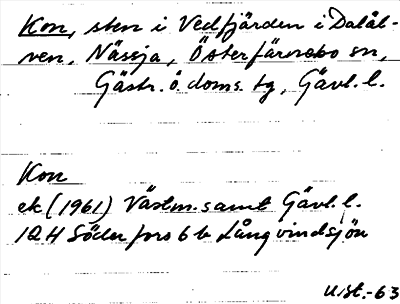 Kon, sten i Vedfjärden i Daläl-
ven, Nässja, Österfärnebo sn,
Gästr. ö. doms. tg, Gävl. l.
Kon
ek (1961) Västm. samt Gävl. l.
12H Söderfors 6 b Långvindsjön
U.st.-63